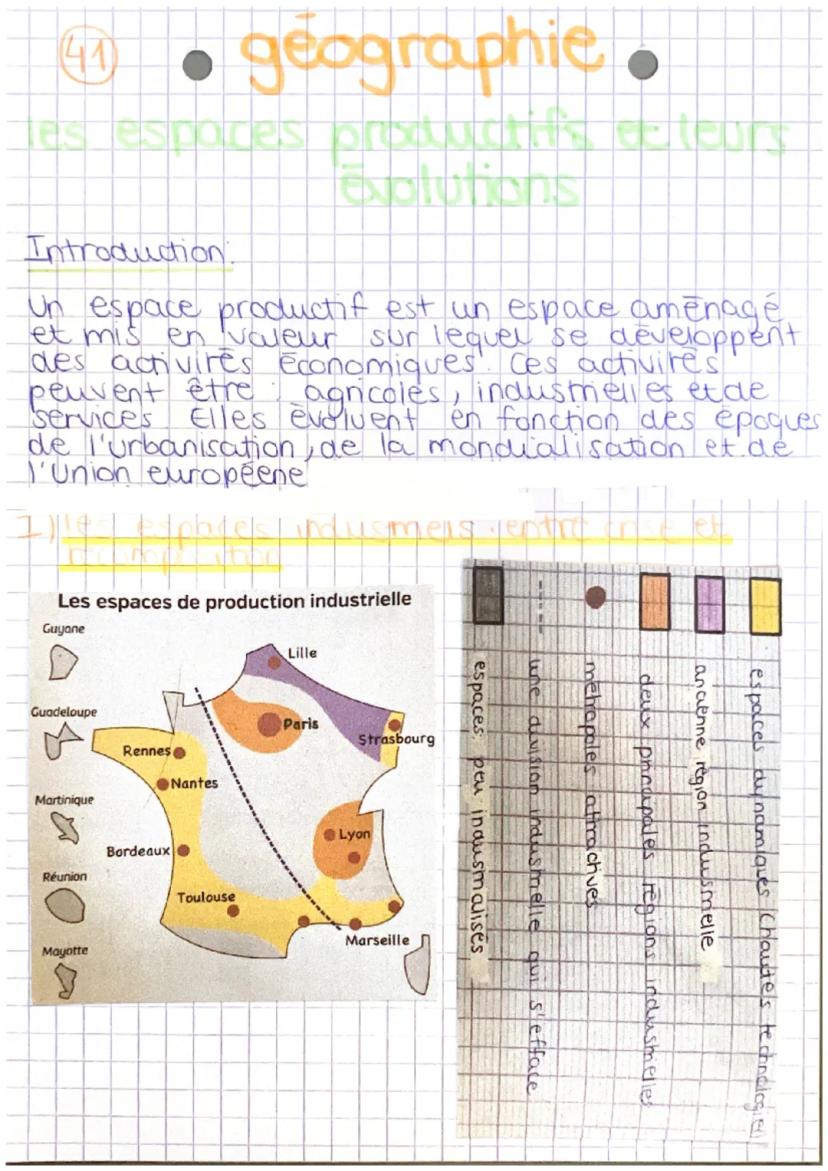 41
géographie
les espaces productifs et leurs
évolutions
Introduction:
Un espace productif est un espace aménagé
et mis en valeur sur lequel se développent
des activités économiques. Ces activités
peuvent être : agricoles, industrielles et de
services. Elles évoluent en fonction des époques
de l'urbanisation, de la mondialisation et de
l'Union européene
1) les espaces industriels : entre crise et
recomposition
Les espaces de production industrielle
Guyane
Guadeloupe
Martinique
Réunion
Mayotte
Lille
Paris
Strasbourg
Rennes
Nantes
Lyon
Bordeaux
Toulouse
Marseille
espaces dynamiques (hautes technologies)
ancienne région industrielle
deux principales régions industrielles
métropoles attractives
une division industrielle qui s'efface
espaces peu industrialisés